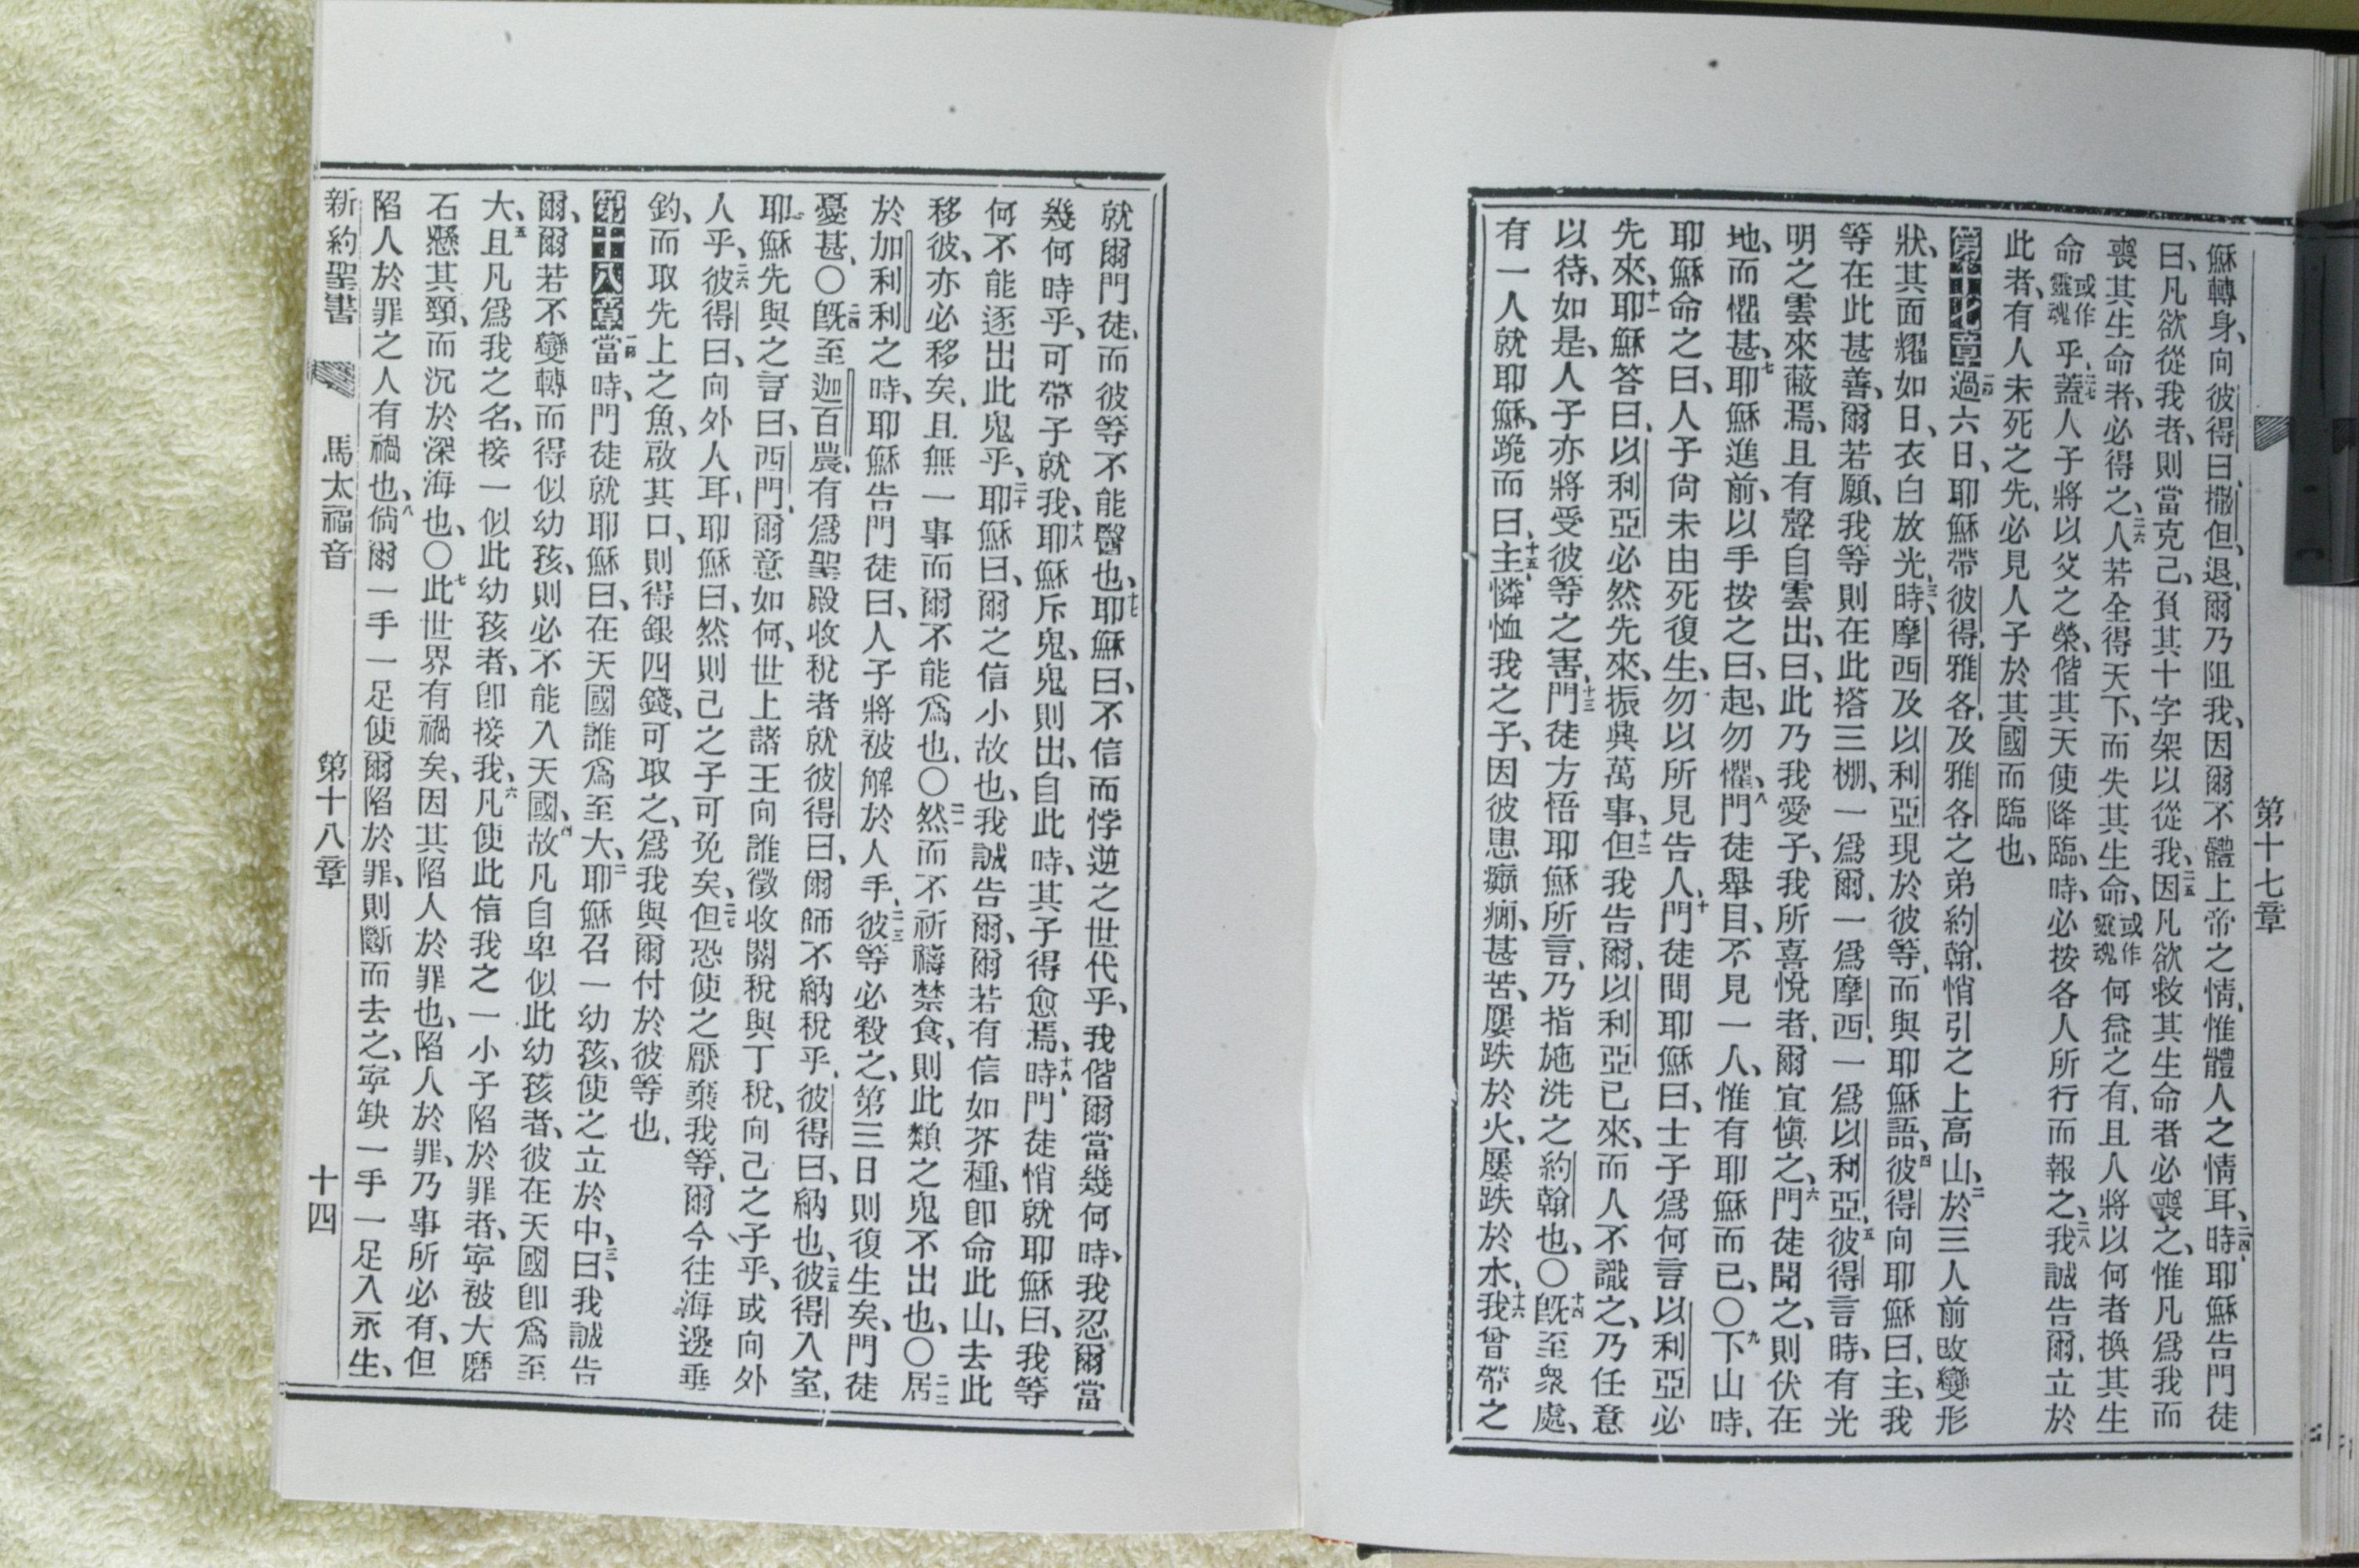 第十七章
穌轉身、向彼得曰、撒但、退、爾乃阻我、因爾不體上帝之情、惟體人之情耳、二四時、耶穌告門徒
曰、凡欲從我者、則當克己、負其十字架以從我、二五因凡欲救其生命者必喪之、惟凡爲我而
喪其生命者、必得之、二六人若全得天下、而失其生命、或作靈魂何益之有、且人將以何者換其生
命或作靈魂乎、二七蓋人子將以父之榮、偕其天使降臨、時、必按各人所行而報之、二八我誠告爾、立於
此者、有人未死之先、必見人子於其國而臨也、
第十七章一節過六日、耶穌帶彼得、雅各、及雅各之弟約翰、悄引之上高山、二於三人前改變形
狀、其面耀如日、衣白放光、三時、摩西及以利亞現於彼等、而與耶穌語、四彼得向耶穌曰、主、我
等在此甚善、爾若願、我等則在此搭三棚、一爲爾、一爲摩西、一爲以利亞、五彼得言時、有光
明之雲來蔽焉、且有聲自雲出、曰、此乃我愛子、我所喜悅者、爾宜愼之、六門徒聞之、則伏在
地、而懼甚、七耶穌進前、以手按之曰、起、勿懼、八門徒舉目、不見一人、惟有耶穌而已、〇九下山時、
耶穌命之曰、人子尙未由死復生、勿以所見告人、十門徒問耶穌曰、士子爲何言以利亞必
先來、十一耶穌答曰、以利亞必然先來、振興萬事、十二但我告爾、以利亞已來、而人不識之、乃任意
以待、如是、人子亦將受彼等之害、十三門徒方悟耶穌所言、乃指施洗之約翰也、〇十四旣至衆處、
有一人就耶穌、跪而曰、十五主、憐恤我之子、因彼患癲癇、甚苦、屢跌於火、屢跌於水、十六我曾帶之
就爾門徒、而彼等不能醫也、十七耶穌曰、不信而悖逆之世代乎、我偕爾當幾何時、我忍爾當
幾何時乎、可帶子就我、十八耶穌斥鬼、鬼則出、自此時、其子得愈焉、十九時、門徒悄就耶穌曰、我等
何不能逐出此鬼乎、二十耶穌曰、爾之信小故也、我誠告爾、爾若有信如芥種、卽命此山、去此
移彼、亦必移矣、且無一事而爾不能爲也、〇二一然而不祈禱禁食、則此類之鬼不出也、〇二二居
於加利利之時、耶穌告門徒曰、人子將被解於人手、二三彼等必殺之、第三日則復生矣、門徒
憂甚、〇二四旣至迦百農、有爲聖殿收稅者就彼得曰、爾師不納稅乎、彼得曰、納也、二五彼得入室、
耶穌先與之言曰、西門、爾意如何、世上諸王向誰徵收關稅與丁稅、向己之子乎、或向外
人乎、二六彼得曰、向外人耳、耶穌曰、然則己之子可免矣、二七但恐使之厭棄我等、爾今往海邊垂
釣、而取先上之魚、啟其口、則得銀四錢、可取之、爲我與爾付於彼等也、
第十八章一節當時、門徒就耶穌曰、在天國誰爲至大、二耶穌召一幼孩、使之立於中、三曰、我誠告
爾、爾若不變轉而得似幼孩、則必不能入天國、四故凡自卑似此幼孩者、彼在天國卽爲至
大、五且凡爲我之名、接一似此幼孩者、卽接我、六凡使此信我之一小子陷於罪者、寧被大磨
石懸其頸、而沉於深海也、〇七此世界有禍矣、因其陷人於罪也、陷人於罪、乃事所必有、但
陷人於罪之人有禍也、八倘爾一手一足使爾陷於罪、則斷而去之、寧缺一手一足入永生、
新約聖書 馬太福音 第十八章 十四